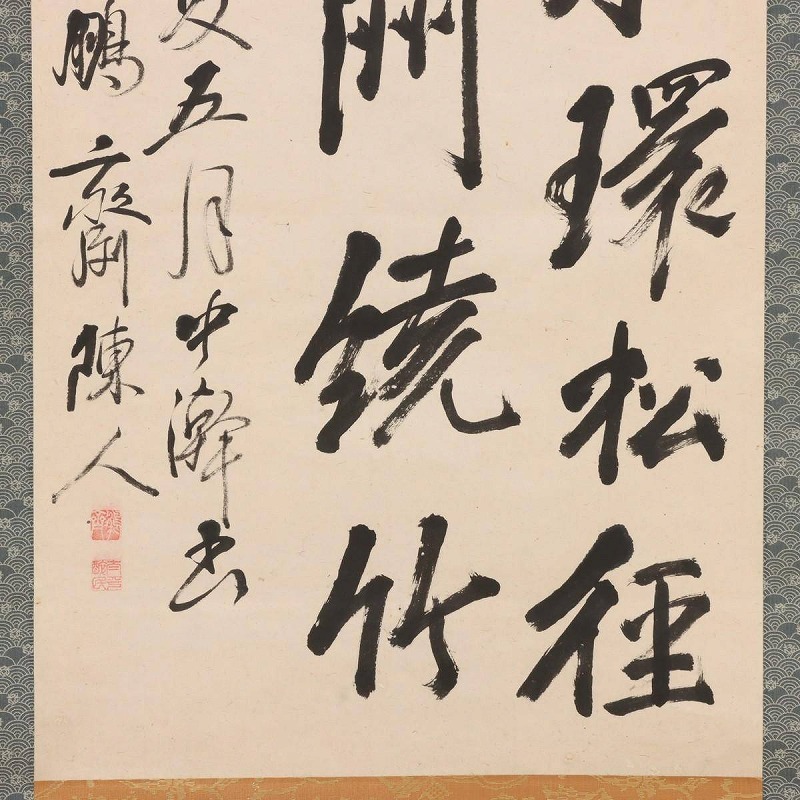 環松徑
繞竹
五月中澣書
鵬齋陳人